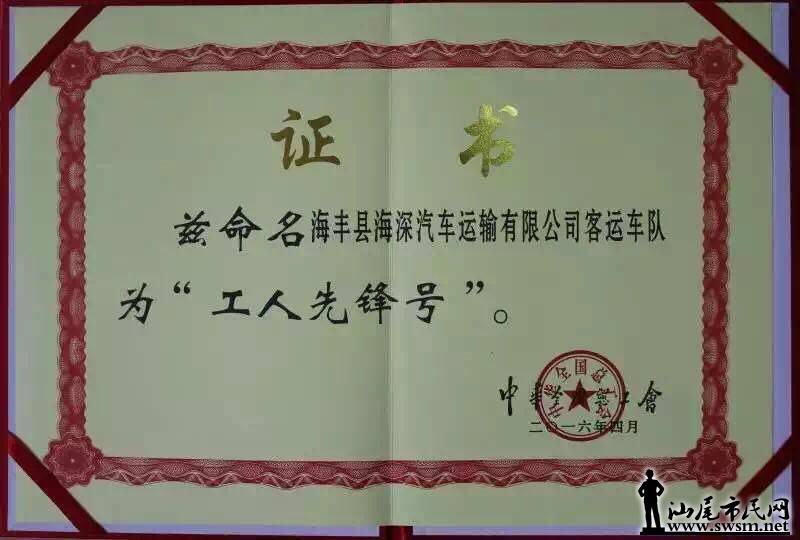 证 书
兹命名海丰县海深汽车运输有限公司客运车队
为“工人先锋号”。
中華全国總工會
二〇一六年四月
汕尾市民网
www.swsm.net